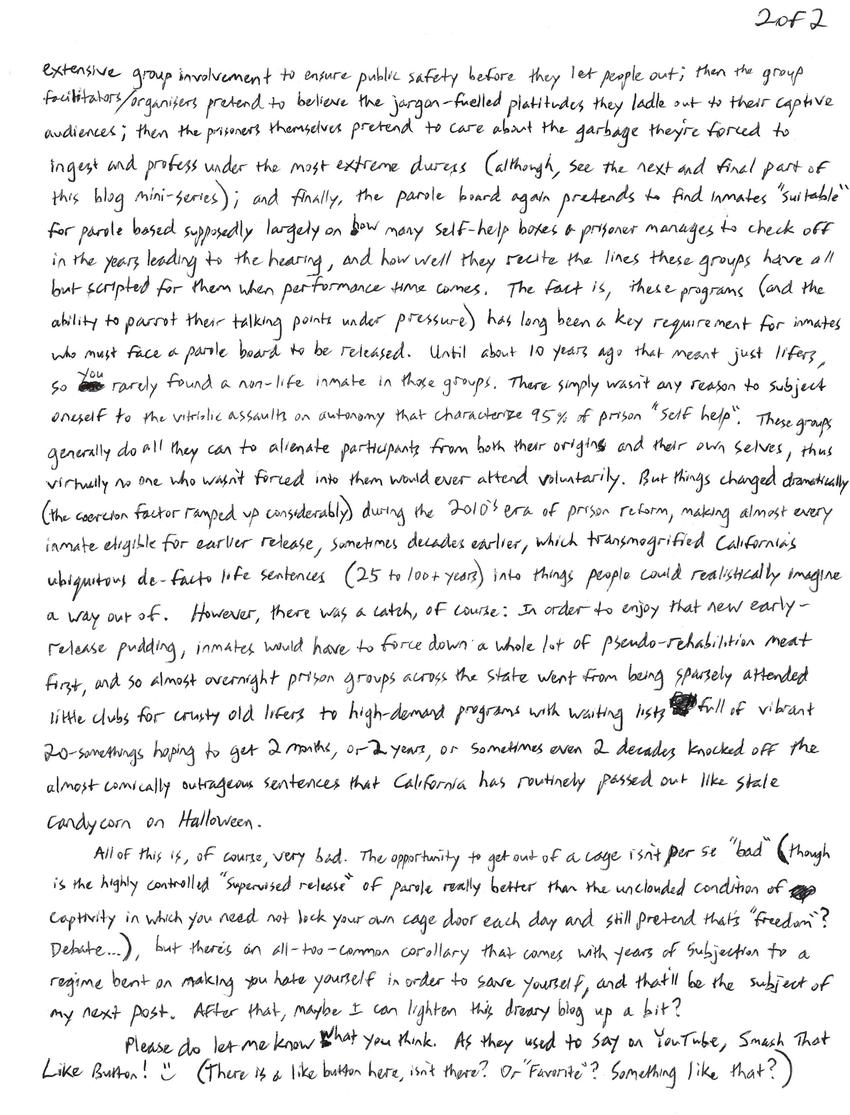 2 of 2
extensive group involvement to ensure public safety before they let people out; then the group
facilitators/organisers pretend to believe the jargon-fuelled platitudes they ladle out to their captive
audiences; then the prisoners themselves pretend to care about the garbage they're forced to
ingest and profess under the most extreme duress (although, see the next and final part of
this blog mini-series); and finally, the parole board again pretends to find inmates "suitable"
for parole based supposedly largely on how many self-help boxes a prisoner manages to check off
in the years leading to the hearing, and how well they recite the lines these groups have all
but scripted for them when performance time comes. The fact is, these programs (and the
ability to parrot their talking points under pressure) has long been a key requirement for inmates
who must face a parole board to be released. Until about 10 years ago that meant just lifers,
so you rarely found a non-life inmate in those groups. There simply wasn't any reason to subject
oneself to the vitriolic assaults on autonomy that characterize 95% of prison "self help". These groups
generally do all they can to alienate participants from both their origins and their own selves, thus
virtually no one who wasn't forced into them would ever attend voluntarily. But things changed dramatically
(the coercion factor ramped up considerably) during the 2010's era of prison reform, making almost every
inmate eligible for earlier release, sometimes decades earlier, which transmogrified California's
ubiquitous de-facto life sentences (25 to 100+ years) into things people could realistically imagine
a way out of. However, there was a catch, of course: In order to enjoy that new early-
release pudding, inmates would have to force down a whole lot of pseudo-rehabilition meat
first, and so almost overnight prison groups across the state went from being sparsely attended
little clubs for crusty old lifers to high-demand programs with waiting lists full of vibrant
20-somethings hoping to get 2 months, or 2 years, or sometimes even 2 decades knocked off the
almost comically outrageous sentences that California has routinely passed out like stale
candycorn on Halloween.
All of this is, of course, very bad. The opportunity to get out of a cage isn't per se "bad" (though
is the highly controlled "supervised release" of parole really better than the unclouded condition of
captivity in which you need not lock your own cage door each day and still pretend that's "freedom"?
Debate...), but there's an all-too-common corollary that comes with years of subjection to a
regime bent on making you hate yourself in order to save yourself, and that'll be the subject of
my next post. After that, maybe I can lighten this dreary blog up a bit?
Please do let me know what you think. As they used to say on YouTube, Smash That
Like Button! :) (There is a like button here, isn't there? Or "Favorite"? Something like that?)